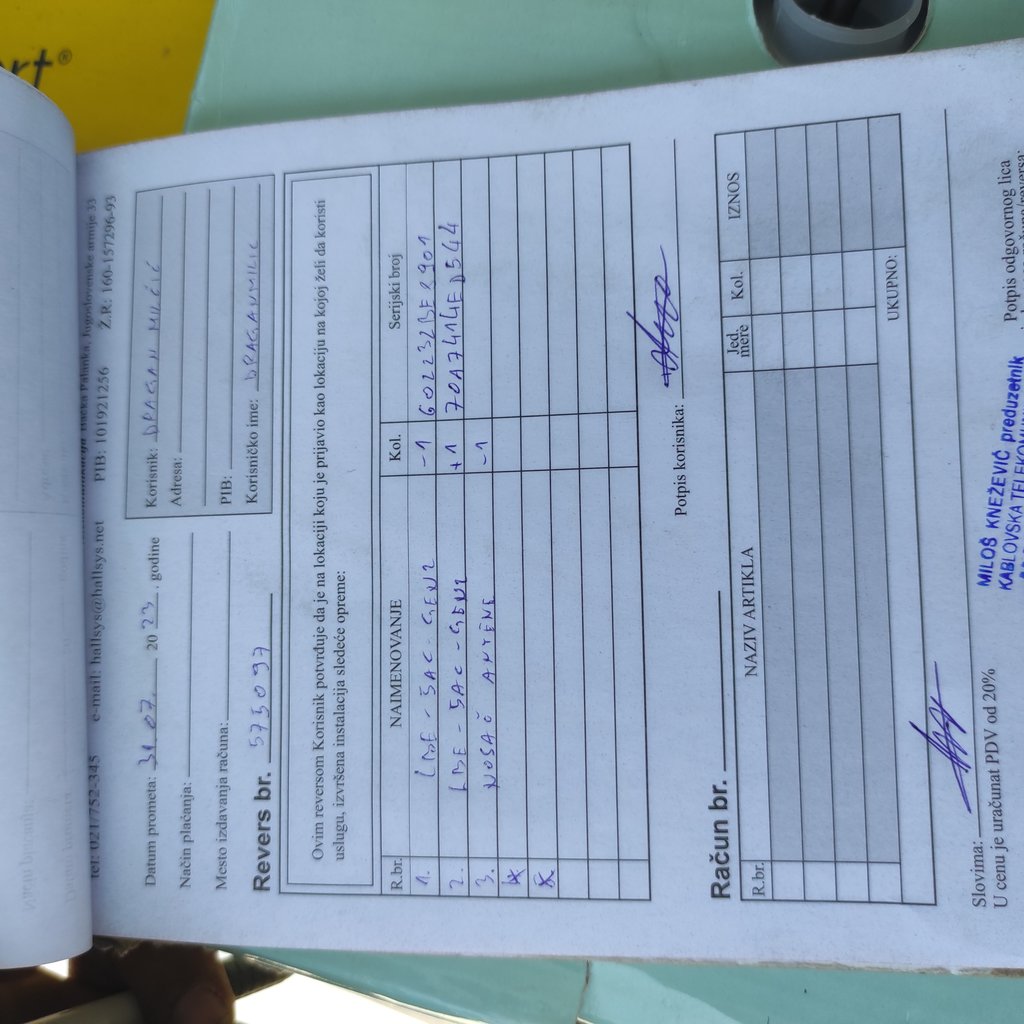 rt®
Bačka Palanka, Jugoslovenske armije 33
tel: 021/752-345 e-mail: hallsys@hallsys.net PIB: 101921256 Ž.R: 160-157296-93
Datum prometa: 31.07. 2023. godine
Način plaćanja:
Mesto izdavanja računa:
Korisnik: DRAGAN MILIĆ
Adresa:
PIB:
Korisničko ime: DRAGANMILIC
Revers br. 575097
Ovim reversom Korisnik potvrđuje da je na lokaciji koju je prijavio kao lokaciju na kojoj želi da koristi
uslugu, izvršena instalacija sledeće opreme:
R.br. NAIMENOVANJE Kol. Serijski broj
1. LBE-5AC-GEN2 -1 602232BE2901
2. LBE-5AC-GEN2 +1 70A7414ED544
3. NOSAČ ANTENE -1
Potpis korisnika:
Račun br.
R.br. NAZIV ARTIKLA Jed. mere Kol. IZNOS
UKUPNO:
Slovima:
U cenu je uračunat PDV od 20%
MILOŠ KNEŽEVIĆ preduzetnik
KABLOVSKA
Potpis odgovornog lica